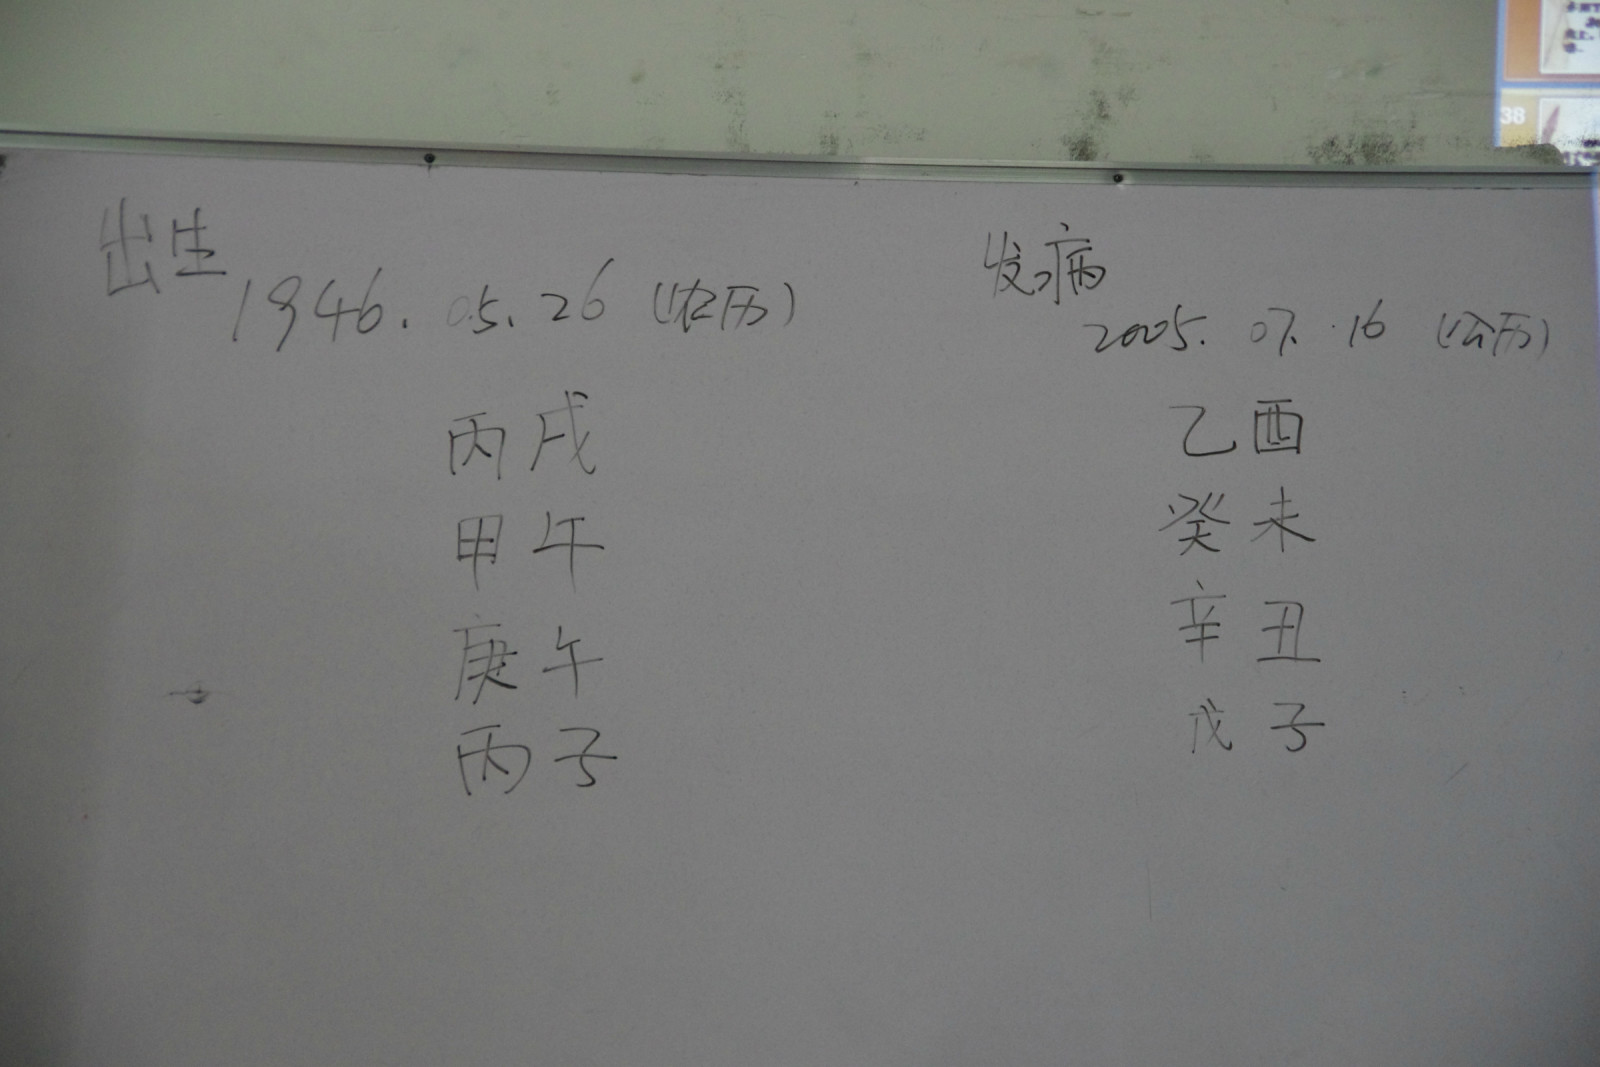 出生
1946.05.26(农历)
丙戌
甲午
庚午
丙子
发病
2005.07.16(公历)
乙酉
癸未
辛丑
戊子
38